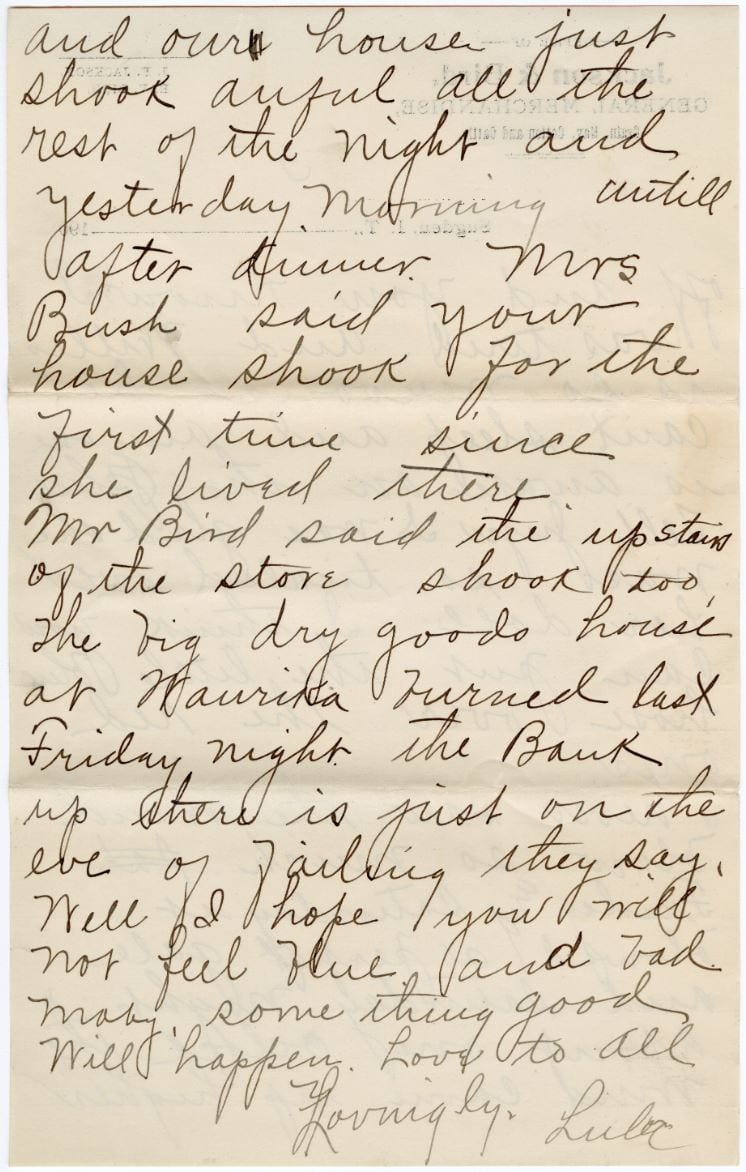 and our house just
shook auful all the
rest of the night and
yesterday morning untill
after dinner. Mrs
Bush said your
house shook for the
first time since
she lived there
Mr Bird said the upstairs
of the store shook too,
the big dry goods house
at Waurika burned last
Friday night. the Bank
up there is just on the
eve of failing they say,
Well I hope you will
not feel blue and bad.
may, some thing good
Will happen. Love to all
Lovingly. Lula